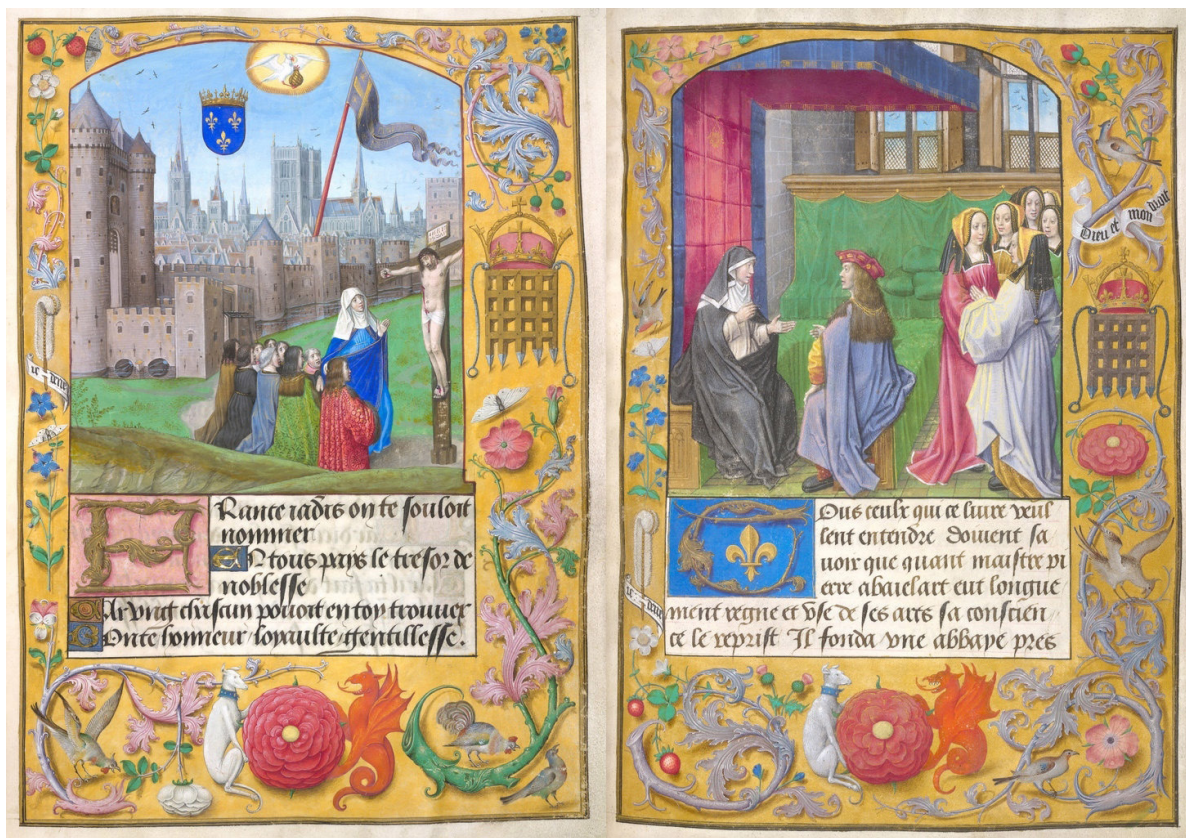 FRance iadis on te souloit
nommer
En tous pays le tresor de
noblesse
Car vng chascun pouoit en toy trouuer
Bonte honneur loyaulte gentillesse.
Dieu et mon droit
Tous ceulx qui ce liure veul
lent entendre doiuent sa
uoir que quant maistre pi
erre abaielart eut longue
ment regne et vse de ses arts sa conscien
ce le reprist Il fonda vne abbaye pres